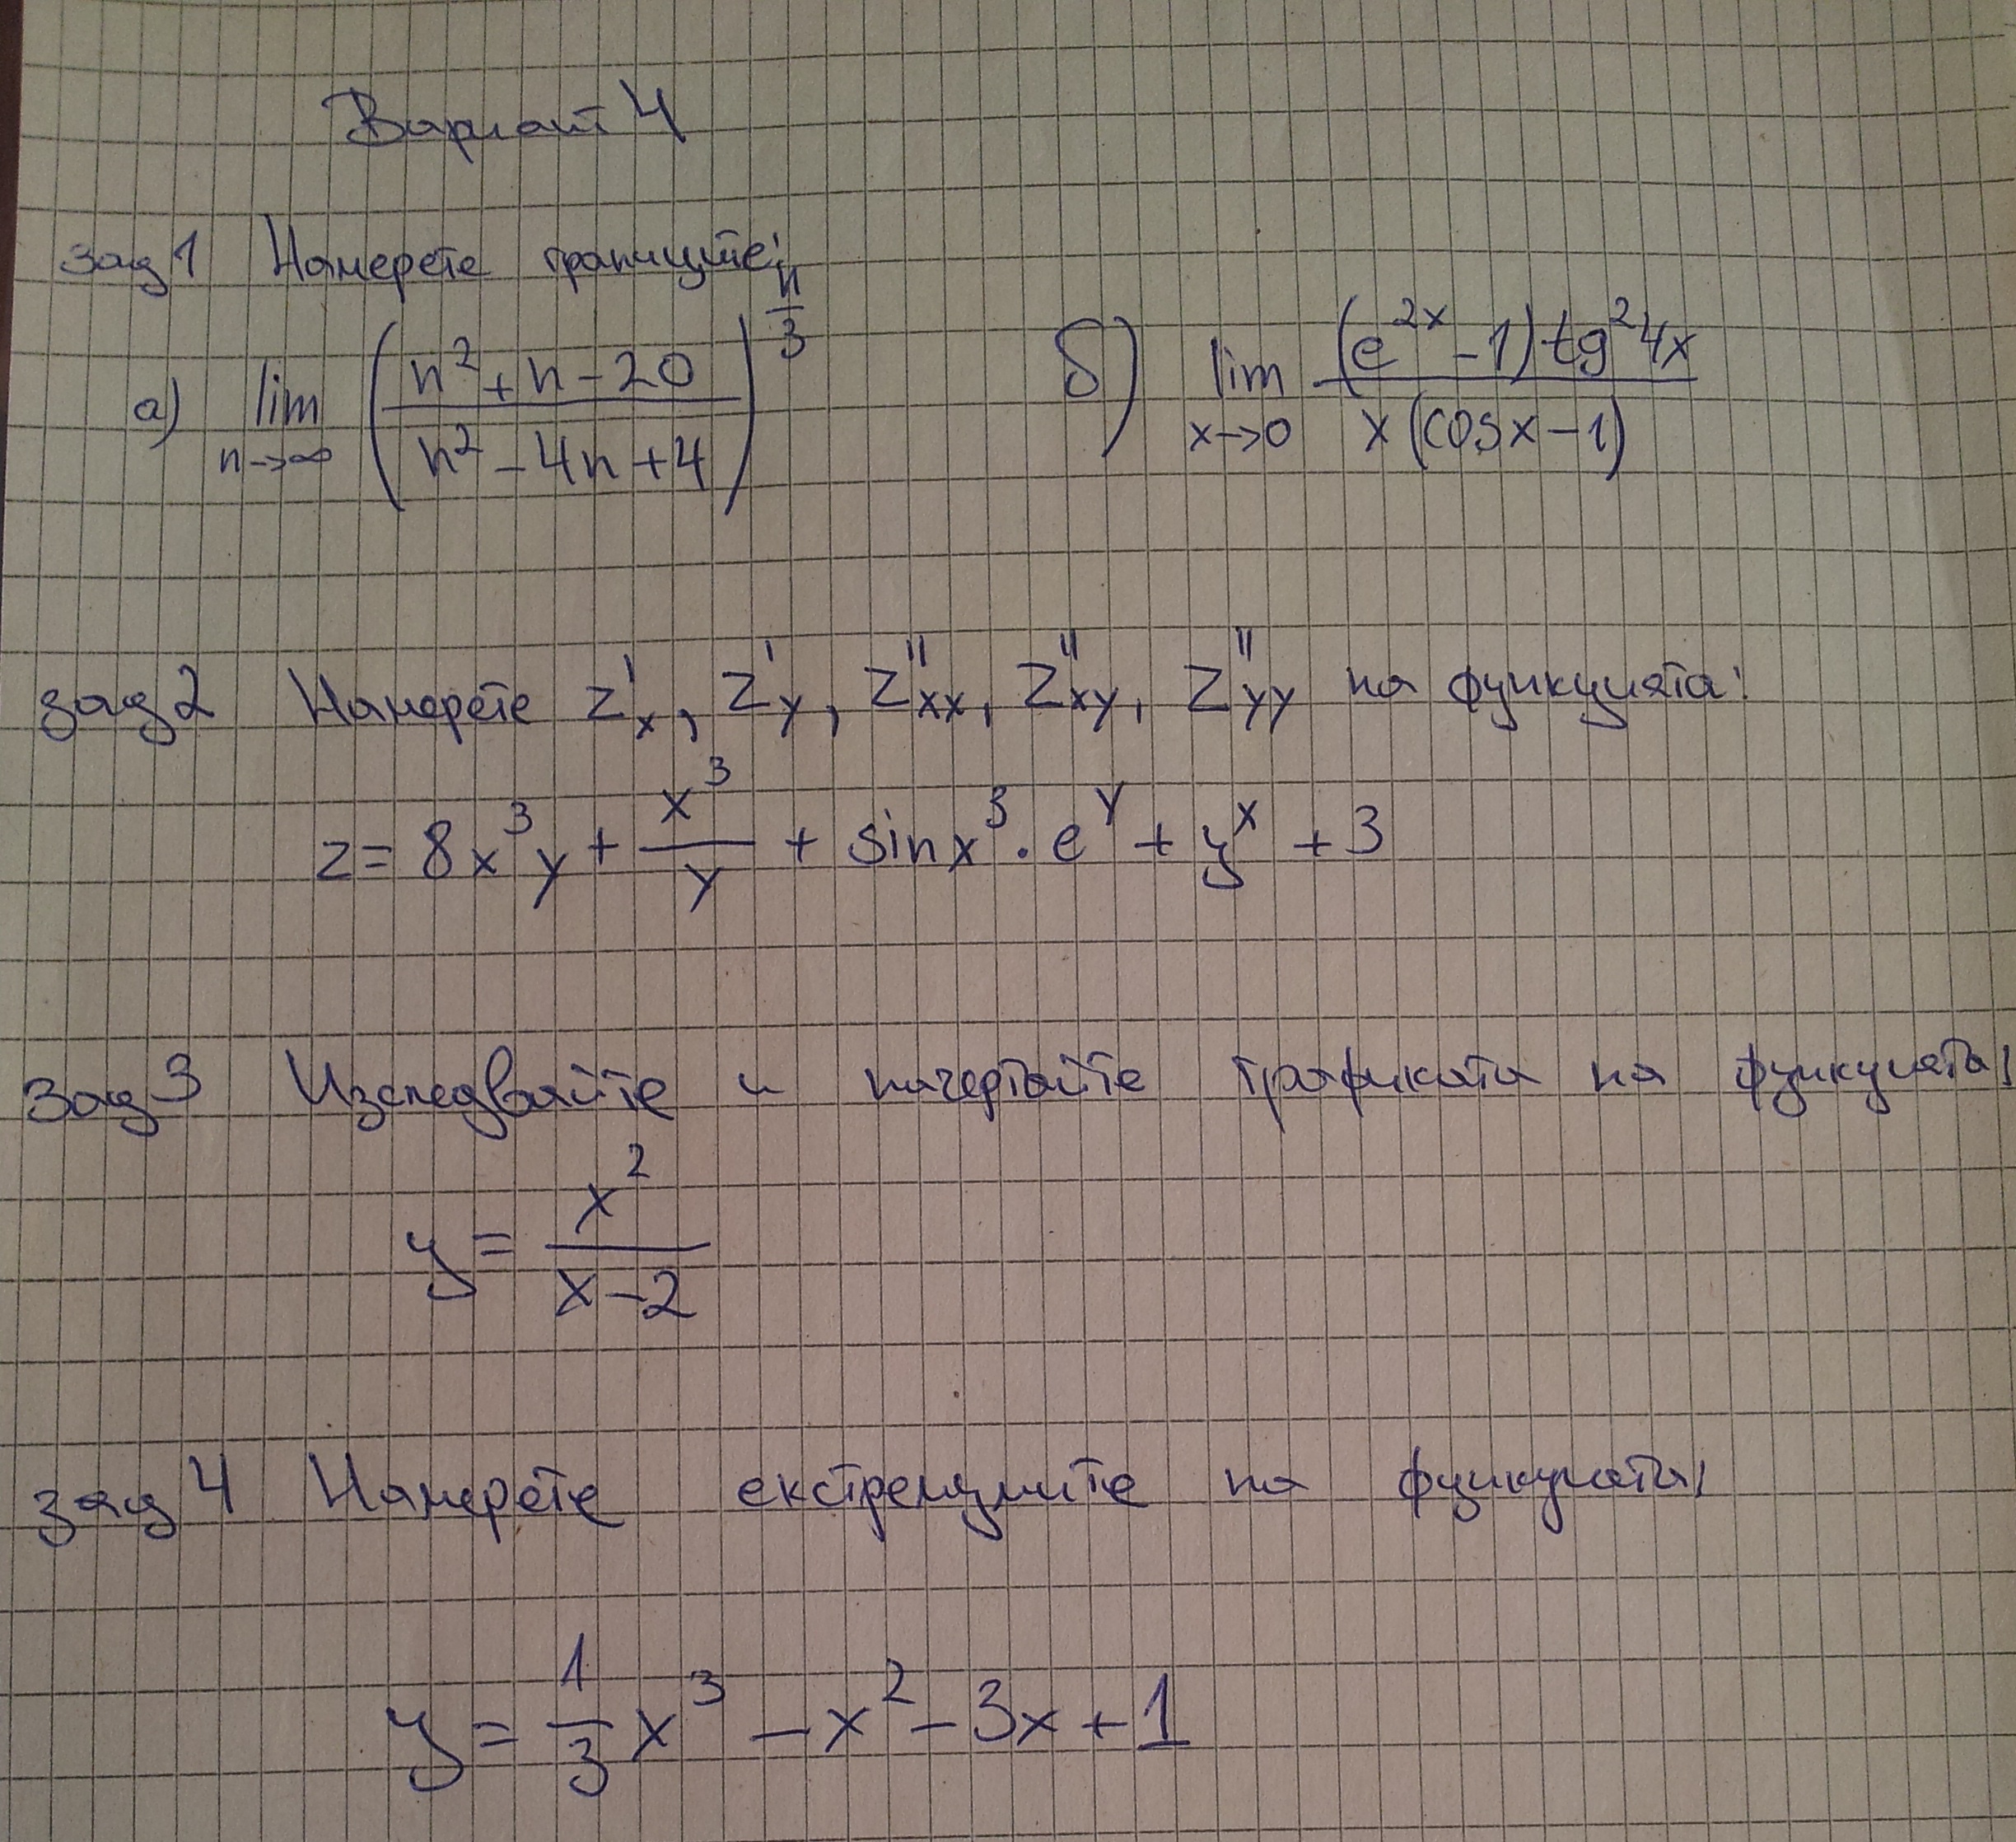 Вариант 4
зад 1 Намерете границите:
а) lim n→∞ ((n²+n-20)/(n²-4n+4))^(n/3) б) lim x→0 ((e^(2x)-1)tg²4x)/(x(cosx-1))
зад 2 Намерете z'x, z'y, z''xx, z''xy, z''yy на функцията:
z = 8x³y + x³/y + sinx³.e^y + y^x + 3
зад 3 Изследвайте и начертайте графиката на функцията:
y = x²/(x-2)
зад 4 Намерете екстремумите на функцията:
y = 1/3 x³ - x² - 3x + 1